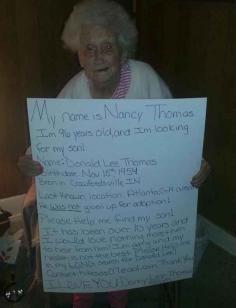 My name is Nancy Thomas.
I'm 96 years old, and I'm looking
for my son!
Name: Donald Lee Thomas
Birthdate: Nov 15th 1954
Born in Crawfordsville, IN
Last Known location: Atlanta, GA area
He was not given up for adoption!
Please help me find my son!
It has been over 15 years and
I would love nothing more then
to hear from him! I'm
health is not the best. Please
Thank You!
I LOVE YOU Donny Lee Thomas